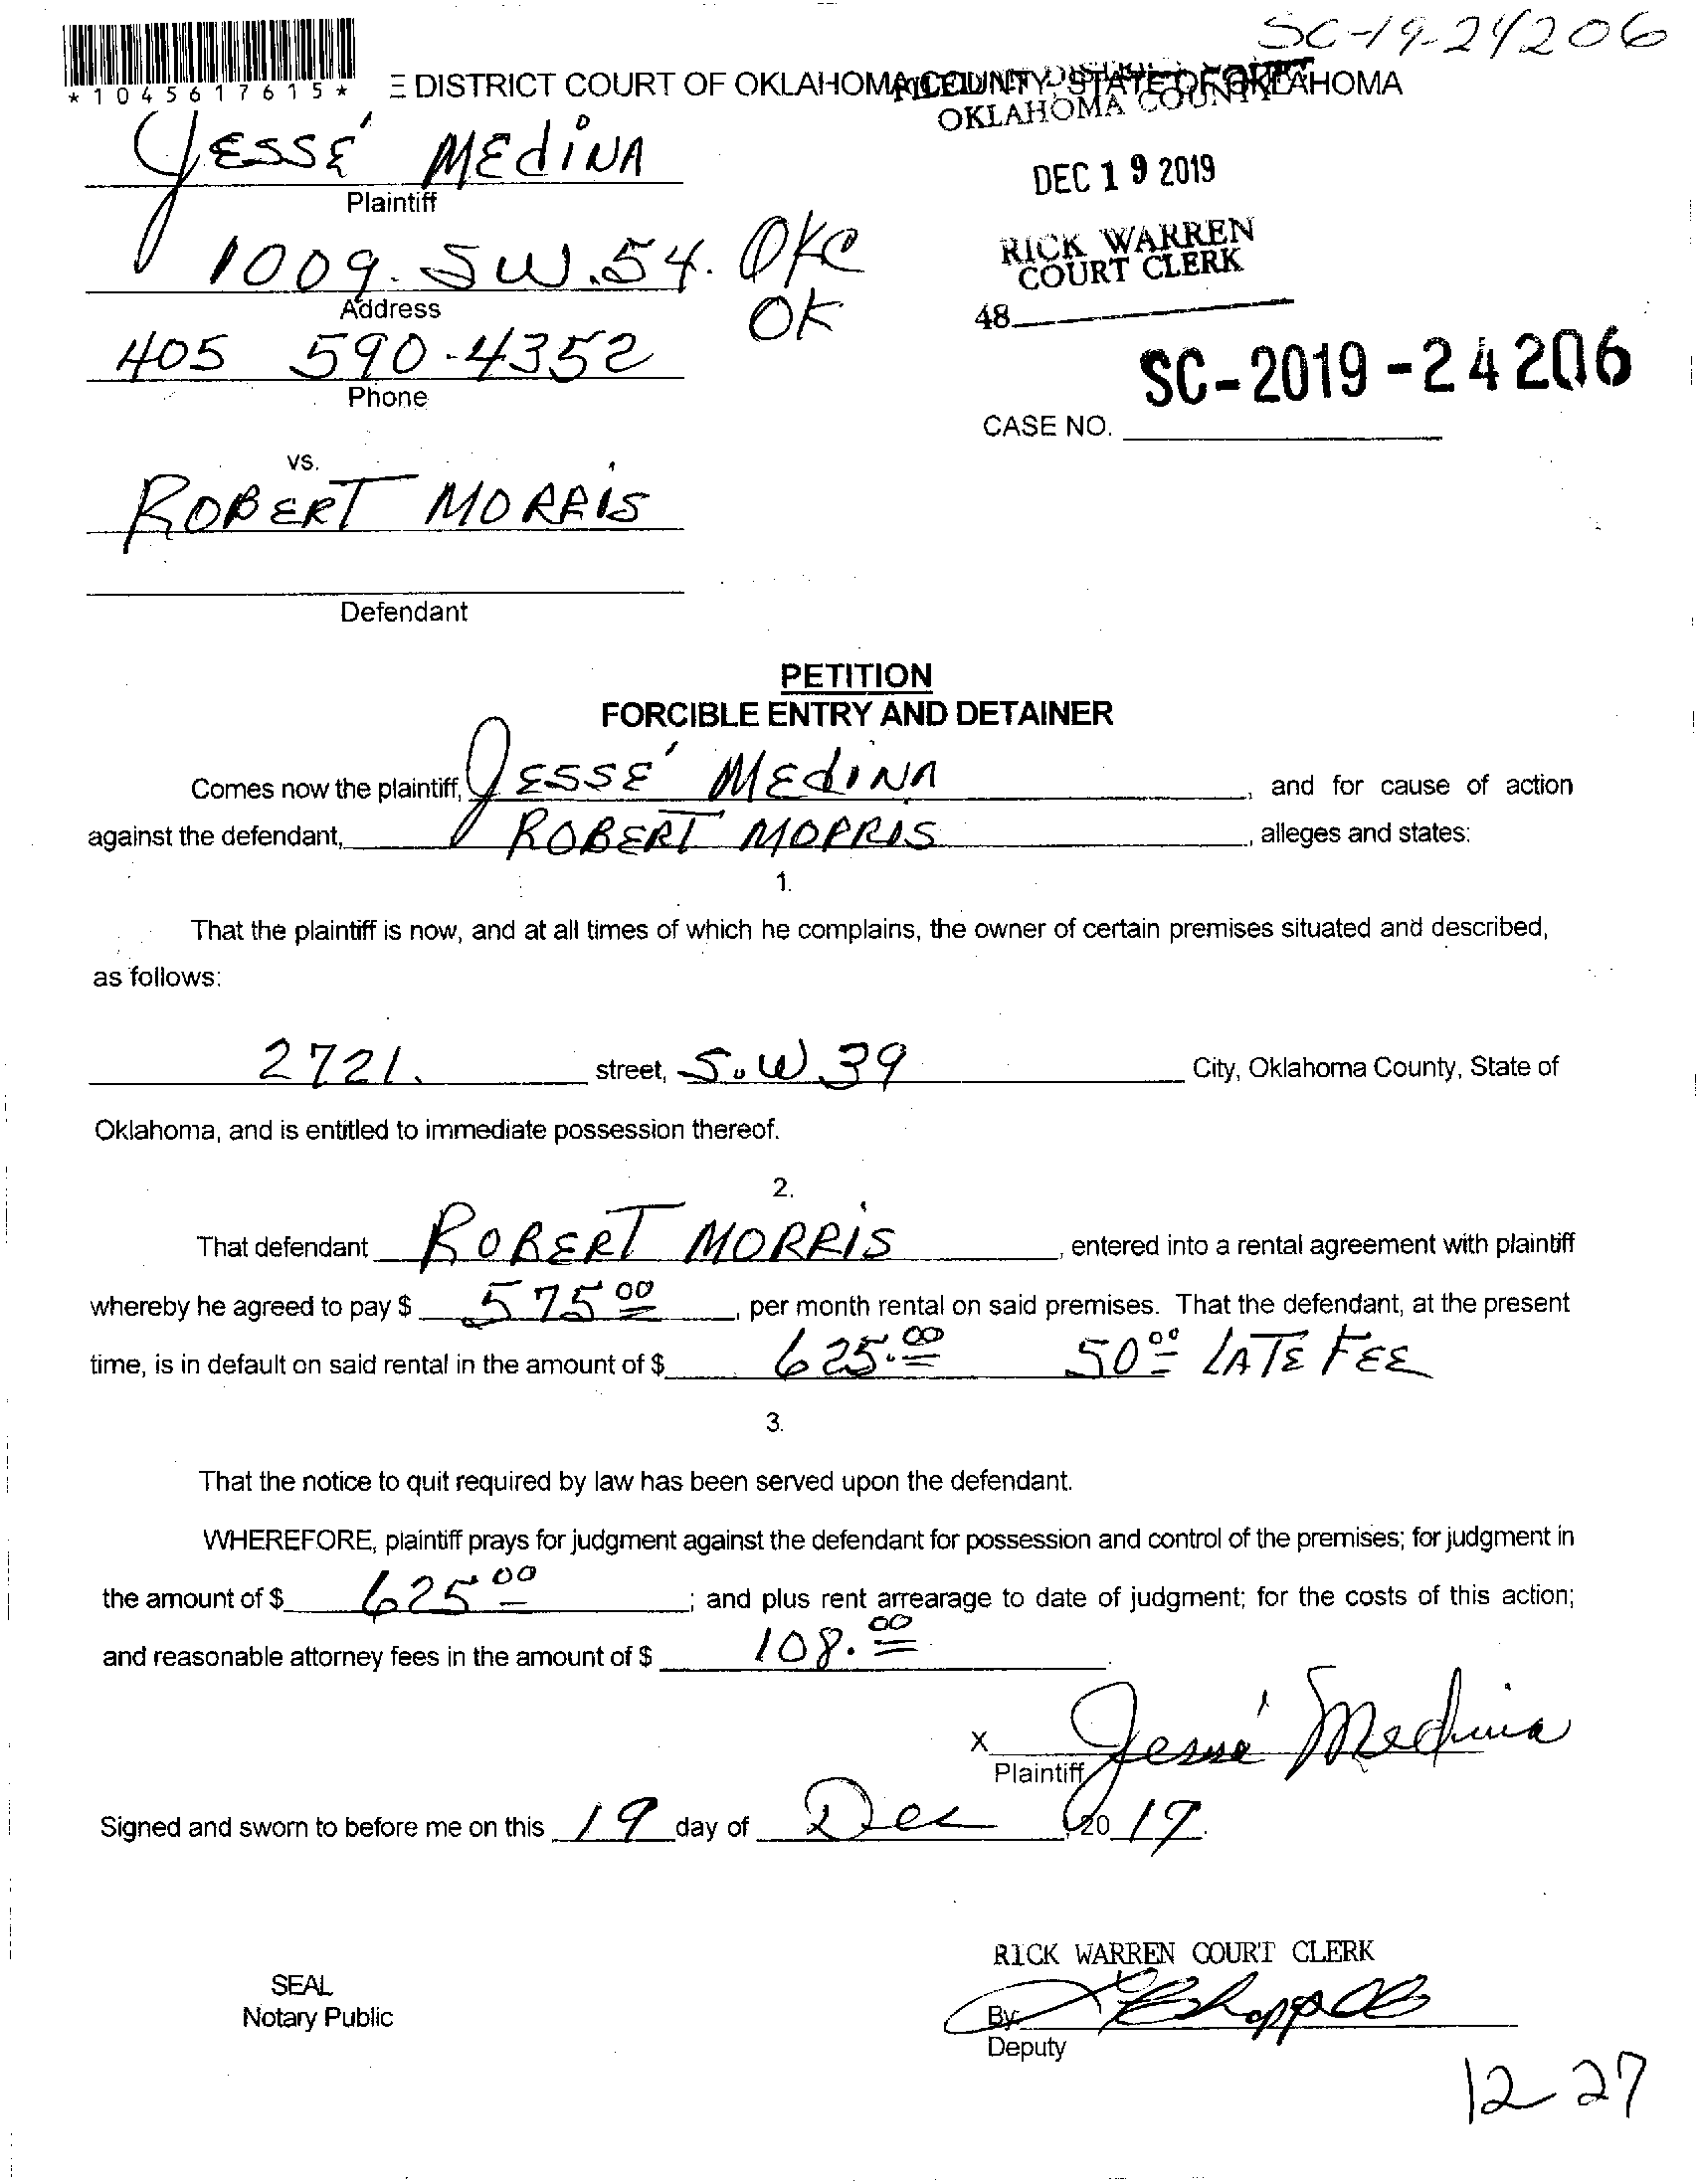 SC-19-24206
*1045617615*
E DISTRICT COURT OF OKLAHOMA COUNTY, STATE OF OKLAHOMA
FILED IN DISTRICT COURT
OKLAHOMA COUNTY
JESSE' MEdiNA
Plaintiff
DEC 19 2019
1009. SW. 54. OKC
OK
Address
RICK WARREN
COURT CLERK
48
405 590-4352
Phone
SC-2019-24206
CASE NO.
vs.
ROBERT MORRIS
Defendant
PETITION
FORCIBLE ENTRY AND DETAINER
Comes now the plaintiff, JESSE' MEdINA, and for cause of action
against the defendant, ROBERT MORRIS, alleges and states:
1.
That the plaintiff is now, and at all times of which he complains, the owner of certain premises situated and described,
as follows:
2721. street, S.W 39 City, Oklahoma County, State of
Oklahoma, and is entitled to immediate possession thereof.
2.
That defendant ROBERT MORRIS, entered into a rental agreement with plaintiff
whereby he agreed to pay $ 575 00, per month rental on said premises. That the defendant, at the present
time, is in default on said rental in the amount of $ 625.00 50 00 LATE FEE
3.
That the notice to quit required by law has been served upon the defendant.
WHEREFORE, plaintiff prays for judgment against the defendant for possession and control of the premises; for judgment in
the amount of $ 625 00; and plus rent arrearage to date of judgment; for the costs of this action;
and reasonable attorney fees in the amount of $ 108.00
X Jesse' Medina
Plaintiff
Signed and sworn to before me on this 19 day of Dec, 20 19.
RICK WARREN COURT CLERK
SEAL
Notary Public
By
Deputy
12-27